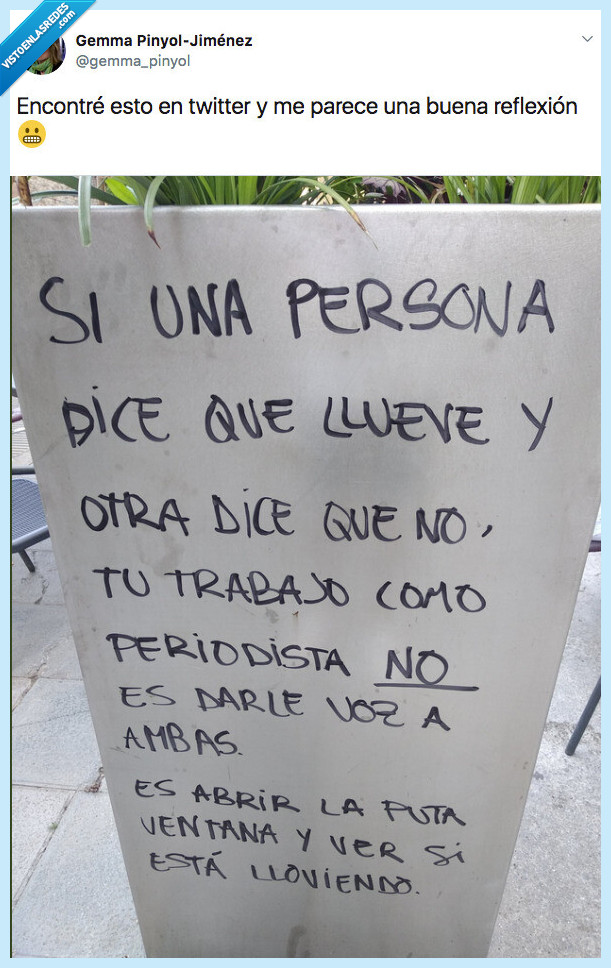 VISTOENLASREDES
.com
Gemma Pinyol-Jiménez
@gemma_pinyol
Encontré esto en twitter y me parece una buena reflexión
😬
SI UNA PERSONA
DICE QUE LLUEVE Y
OTRA DICE QUE NO,
TU TRABAJO COMO
PERIODISTA NO
ES DARLE VOZ A
AMBAS.
ES ABRIR LA PUTA
VENTANA Y VER SI
ESTÁ LLOVIENDO.